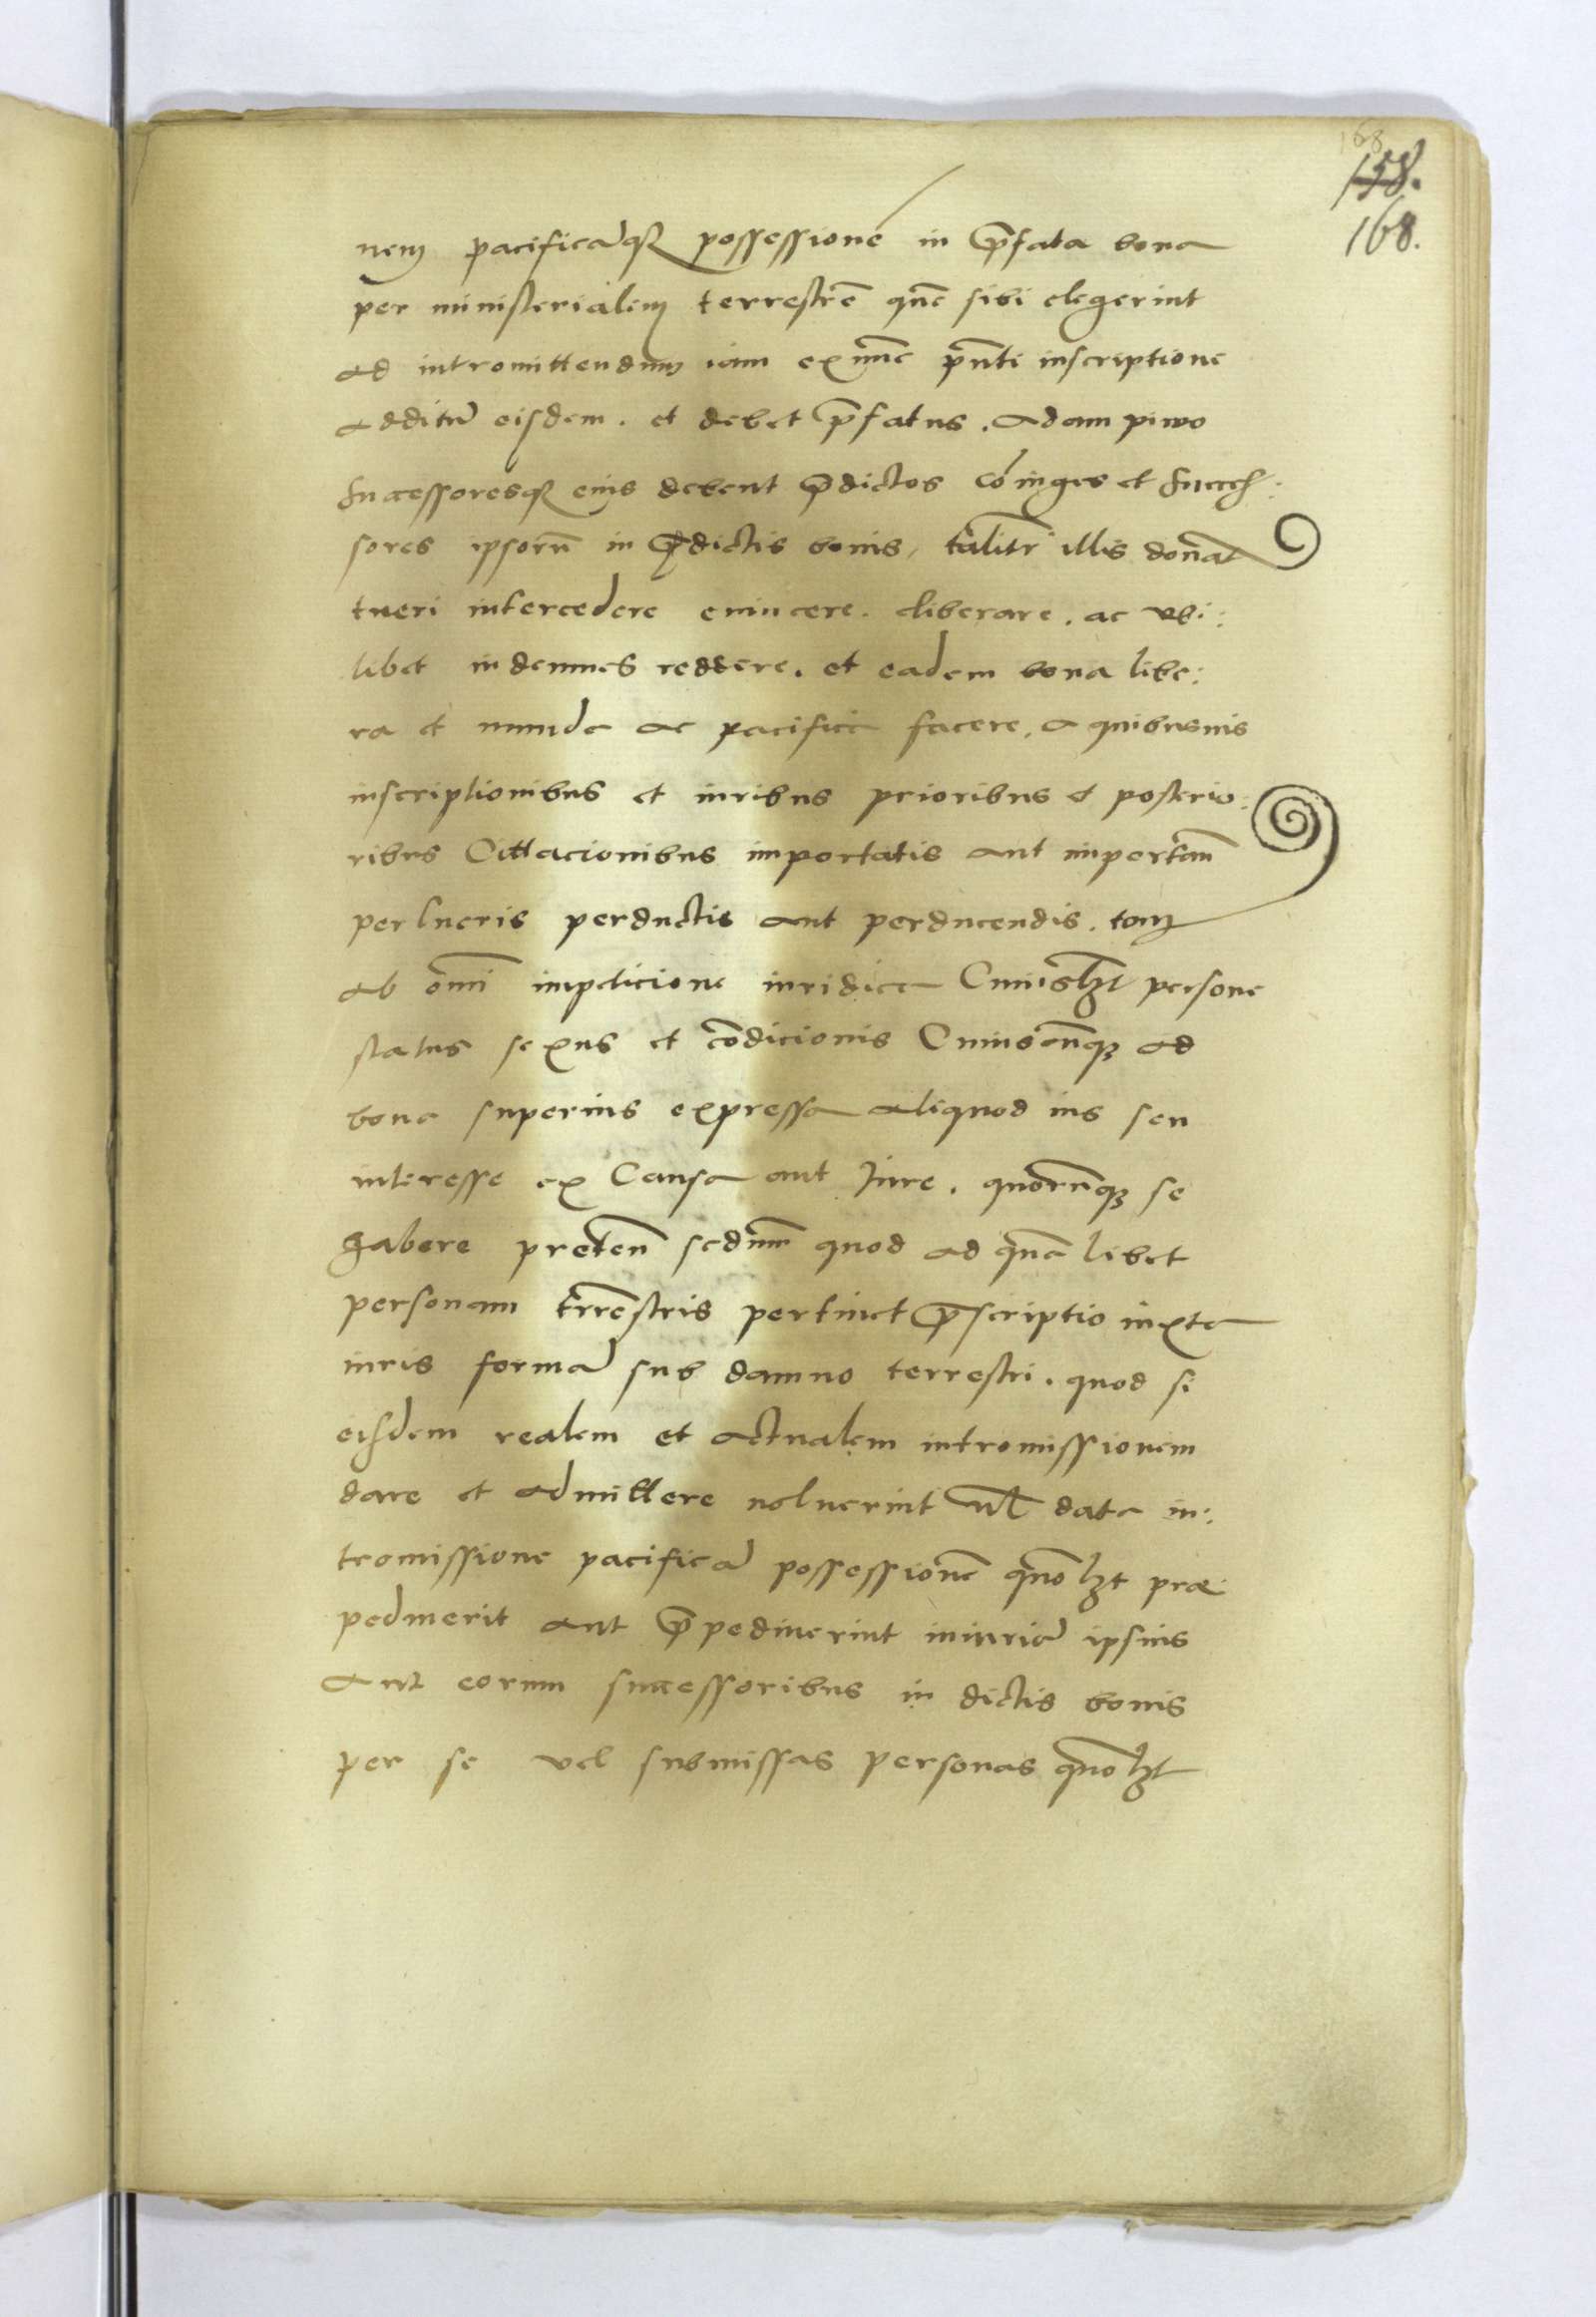 168
158.
168.
nem pacificãq₃ possessionē in p̄fata bona
per ministerialem terrestrē quē sibi elegerint
ad intromittendum iam exnūc pn̄ti inscriptione
additur eisdem. et debet p̄fatus. Adam piwo
successoresq₃ eius debent p̄dictos cōiuges et succes:
sores ipsorū in p̄dictis bonis, talitr̄ illis donat̄
tueri intercedere euincere. eliberare. ac vbi:
libet indemnes reddere. et eadem bona libe:
ra et munda ac pacifica facere, a quibusuis
inscriptionibus et iuribus prioribus et posterio:
ribus Cittacionibus importatis aut importan̄
perlucris perductis aut perducendis. tam
ab omī impeticione iuridica Cuiuslꝫt persone
status sexus et cōdicionis Cuiuscūq₃ ad
bona superius expressa aliquod ius seu
interesse ex Causa aut Jure. quorūq₃ se
habere preten̄ sedmm̄ quod ad quā libet
personam trr̄estris pertinet p̄scriptio iuxta
iuris formā sub damno terrestri. quod si
eisdem realem et actualem intromissionem
dare et admittere noluerint ul̄ data in:
tromissione pacificā possessionē quolꝫt præ
pediuerit aut p̄pediuerint iniuriā ipsius
aut eorum successoribus in dictis bonis
per se vel submissas personas quolꝫt